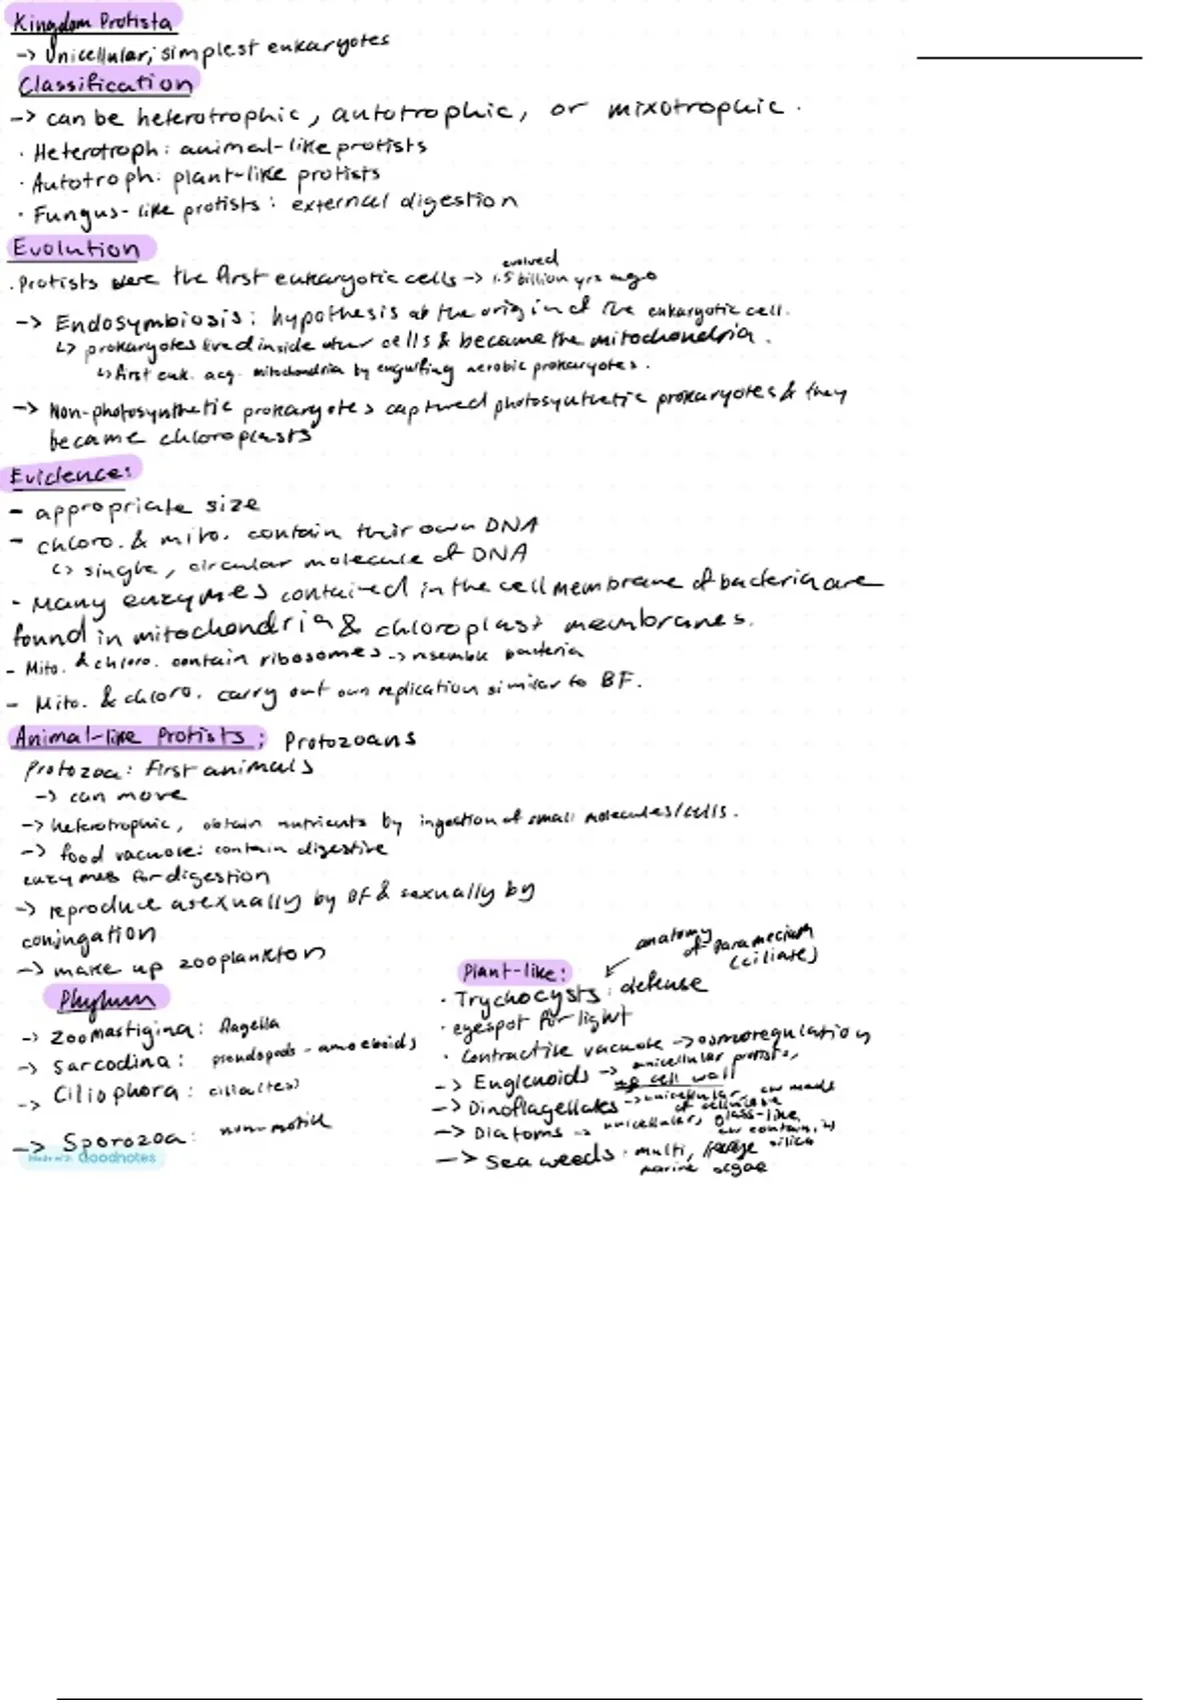 Kingdom Protista
-> Unicellular, simplest eukaryotes
Classification
-> can be heterotrophic, autotrophic, or mixotrophic.
· Heterotroph: animal-like protists
· Autotroph: plant-like protists
· Fungus-like protists: external digestion
Evolution
evolved
· Protists were the first eukaryotic cells -> 1.5 billion yrs ago
-> Endosymbiosis: hypothesis of the origin of the eukaryotic cell.
↳ prokaryotes lived inside other cells & became the mitochondria.
↳ first euk. acq. mitochondria by engulfing aerobic prokaryotes.
-> Non-photosynthetic prokaryotes captured photosynthetic prokaryotes & they
became chloroplasts
Evidence:
- appropriate size
- chloro. & mito. contain their own DNA
↳ single, circular molecule of DNA
- Many enzymes contained in the cell membrane of bacteria are
found in mitochondria & chloroplast membranes.
- Mito. & chloro. contain ribosomes -> resemble bacteria
- Mito. & chloro. carry out own replication similar to BF.
Animal-like Protists: Protozoans
Protozoa: First animals
-> can move
-> heterotrophic, obtain nutrients by ingestion of small molecules/cells.
-> food vacuole: contain digestive
enzymes for digestion
-> reproduce asexually by BF & sexually by
conjugation
-> make up zooplankton
Phylum
-> Zoomastigina: flagella
-> Sarcodina: pseudopods - amoeboids
-> Ciliophora: cilia(tes)
-> Sporozoa: non-motile
Made with Goodnotes
anatomy
of paramecium
(ciliate)
Plant-like:
· Trychocysts: defense
· eyespot for light
· Contractile vacuole -> osmoregulation
-> Euglenoids -> unicellular protists,
cell wall
-> Dinoflagellates -> unicellular, cw made
of cellulose
-> Diatoms -> unicellular, glass-like
cw contain
silica
-> Seaweeds: multi, large
marine algae